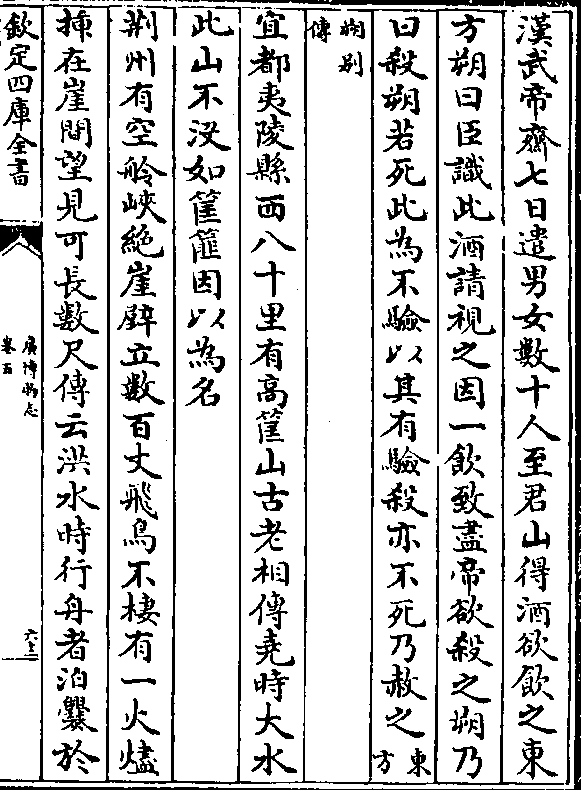 漢武帝齋七日遣男女數十人至君山得酒欲飲之東
方朔曰臣識此酒請視之因一飲致盡帝欲殺之朔乃
曰殺朔若死此為不驗以其有驗殺亦不死乃赦之東方
朔别傳
宜都夷陵縣西八十里有高筐山古老相傳堯時大水
此山不没如筐篚因以為名
荆州有空舲峽絶崖壁立數百丈飛鳥不棲有一火燼
揷在崖間望見可長數尺傳云洪水時行舟者泊爨於
欽定四庫全書
廣博物志
卷五